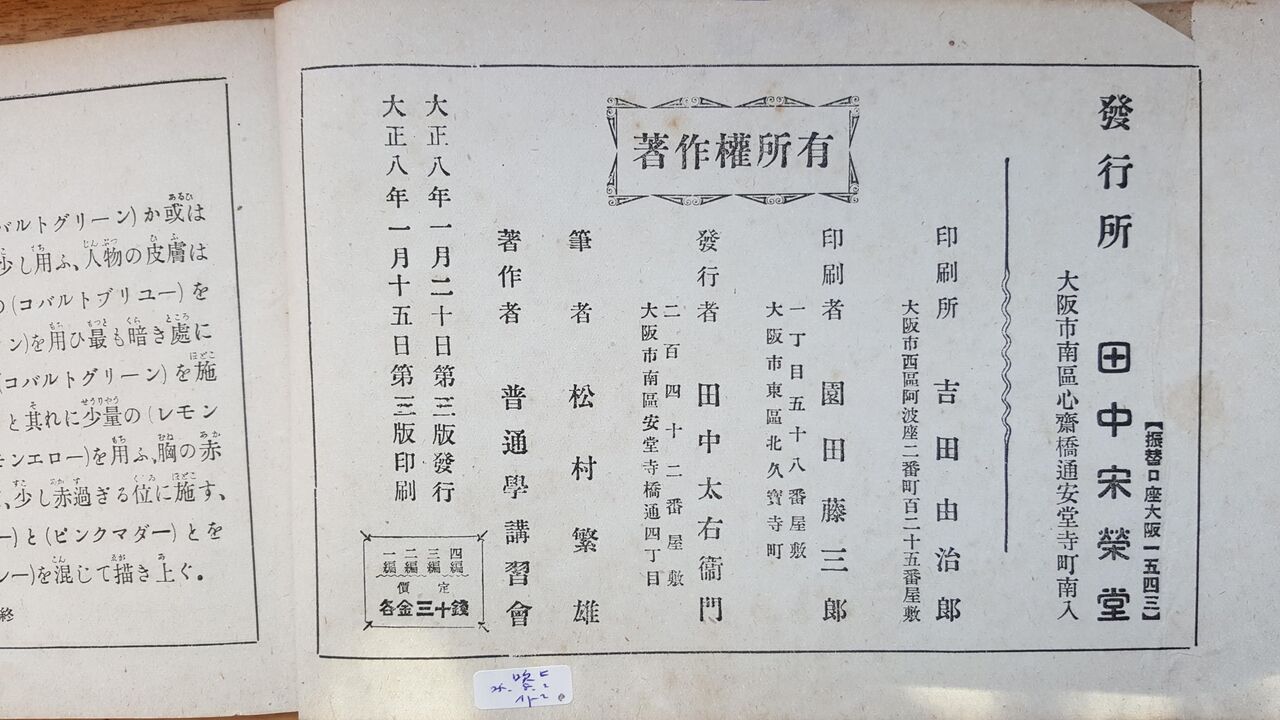 バルトグリーン)か或は
少し用ふ、人物の皮膚は
の(コバルトブリユー)を
ン)を用ひ最も暗き處に
(コバルトグリーン)を施
と其れに少量の(レモン
モンエロー)を用ふ、胸の赤
、少し赤過ぎる位に施す、
ー)と(ピンクマダー)とを
レー)を混じて描き上ぐ。
終
發行所 田中宋榮堂
【振替口座大阪一五四三】
大阪市南區心齋橋通安堂寺町南入
印刷所 吉田由治郎
大阪市西區阿波座二番町百二十五番屋敷
印刷者 園田藤三郎
一丁目五十八番屋敷
大阪市東區北久寶寺町
著作權所有
發行者 田中太右衞門
二百四十二番屋敷
大阪市南區安堂寺橋通四丁目
筆者 松村繁雄
著作者 普通學講習會
大正八年一月二十日第三版發行
大正八年一月十五日第三版印刷
一編 二編 三編 四編
定價
各金三十錢